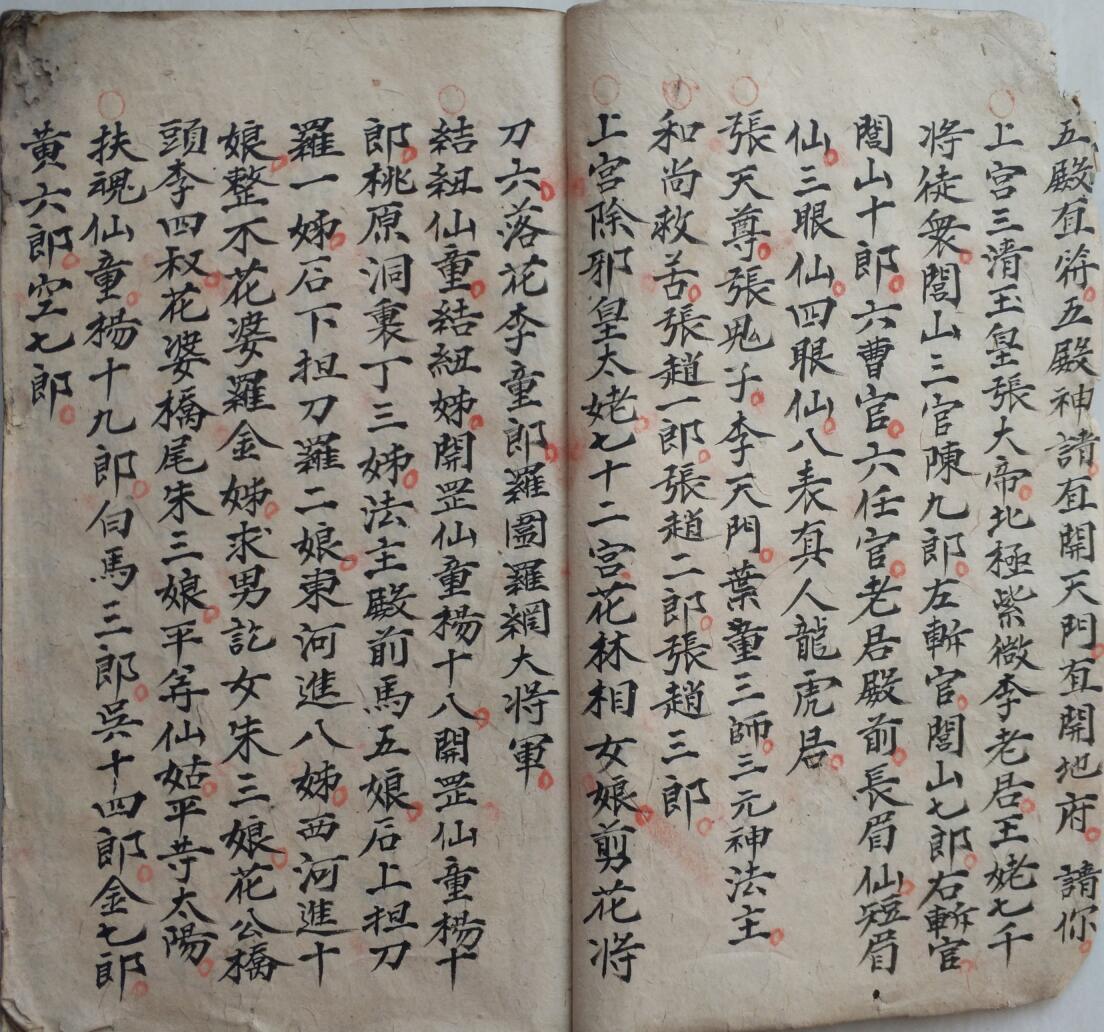 五殿直符五殿神請直開天門直開地府請你
上宮三清玉皇張大帝北極紫微李老君王姥七千
將徒衆閭山三官陳九郎左斬官閭山七郎右斬官
閭山十郎六曹官六任官老君殿前長眉仙短眉
仙三眼仙四眼仙八表真人龍虎君
張天尊張鬼子李天門葉董三師三元神法主
和尚救苦張趙一郎張趙二郎張趙三郎
上宮除邪皇太姥七十二宮花林相女娘剪花將
刀六落花李童郎羅啚羅網大將軍
結紐仙童結紐姊開罡仙童楊十八開罡仙童楊十
郎桃原洞裏丁三姊法主殿前馬五娘石上担刀
羅一姊石下担刀羅二娘東河進八姊西河進十
娘整不花婆羅金姊求男討女朱三娘花公橋
頭李四叔花婆橋尾朱三娘平等仙姑平等太陽
扶魂仙童楊十九郎白馬三郎吳十四郎金七郎
黃六郎空七郎